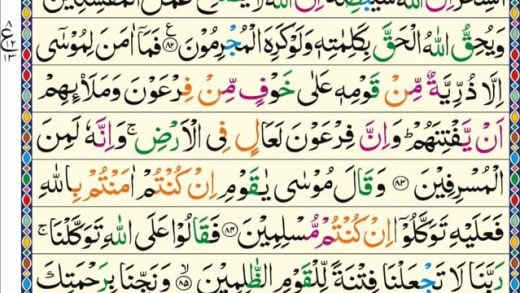 وَيُحِقُّ اللّٰهُ الۡحَقَّ بِكَلِمٰتِهٖ وَلَوۡ كَرِهَ الۡمُجۡرِمُوۡنَ ﴿۸۲﴾ فَمَاۤ اٰمَنَ لِمُوۡسٰٓى
اِلَّا ذُرِّيَّةٌ مِّنۡ قَوۡمِهٖ عَلٰى خَوۡفٍ مِّنۡ فِرۡعَوۡنَ وَمَلَا۟ئِهِمۡ
اَنۡ يَّفۡتِنَهُمۡ‌ؕ وَاِنَّ فِرۡعَوۡنَ لَعَالٍ فِى الۡاَرۡضِ‌ۚ وَاِنَّهٗ لَمِنَ
الۡمُسۡرِفِيۡنَ ﴿۸۳﴾ وَقَالَ مُوۡسٰى يٰقَوۡمِ اِنۡ كُنۡتُمۡ اٰمَنۡتُمۡ بِاللّٰهِ
فَعَلَيۡهِ تَوَكَّلُوۡاۤ اِنۡ كُنۡتُمۡ مُّسۡلِمِيۡنَ ﴿۸۴﴾ فَقَالُوۡا عَلَى اللّٰهِ تَوَكَّلۡنَا‌ۚ
رَبَّنَا لَا تَجۡعَلۡنَا فِتۡنَةً لِّلۡقَوۡمِ الظّٰلِمِيۡنَۙ ﴿۸۵﴾ وَنَجِّنَا بِرَحۡمَتِكَ